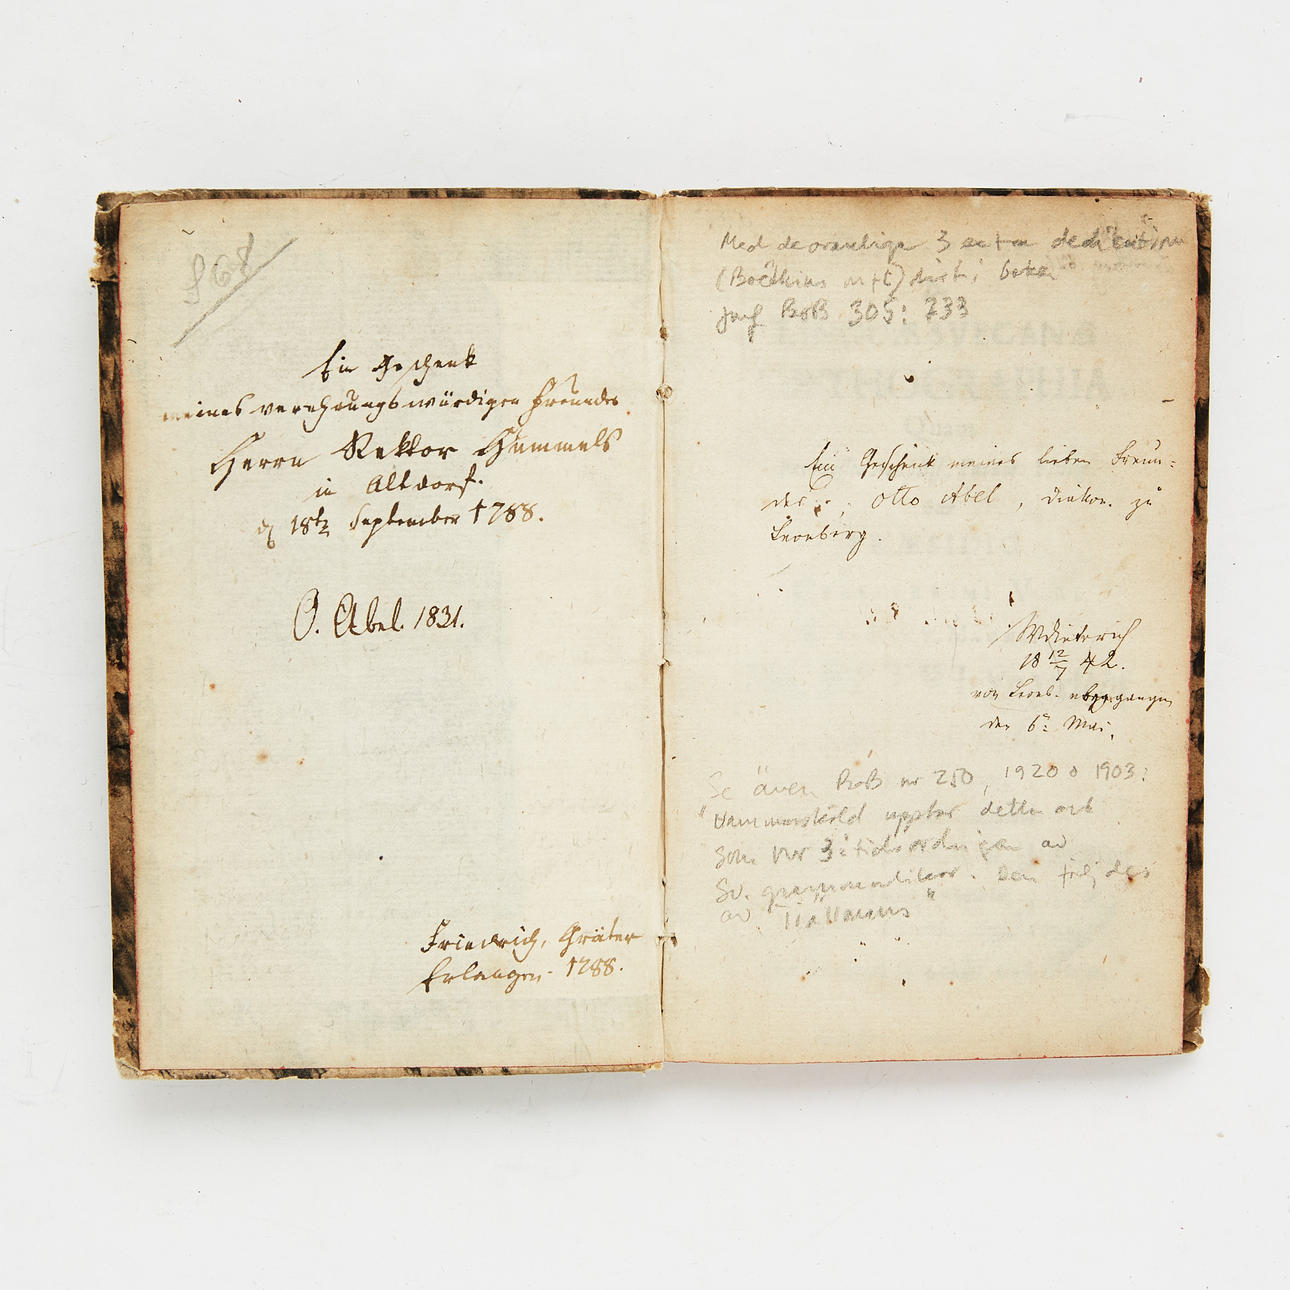 Ein Geschenk
meines verehrungswürdigen Freundes
Herrn Rektor Hummels
in Altdorf.
d 18t September 1788.
O. Abel. 1831.
Friedrich Gräter
Erlangen. 1788.
Med de ovanliga 3 extra dedikationerna
(Boëthius
jmf BoB 305: 733
Ein Geschenk meines lieben Freun-
des Otto Abel, Diakon. zu
Leonberg.
WDieterich
18 12/7 42.
von Leonb. abgegangen
den 6ᵗ Mai.
Se även BoB nr 250, 1920 o 1903:
"Hammersköld upptar detta arb
som nr 3 i tidsordningen av
Sv. grammatikor. Den följdes
av Tiällmans"